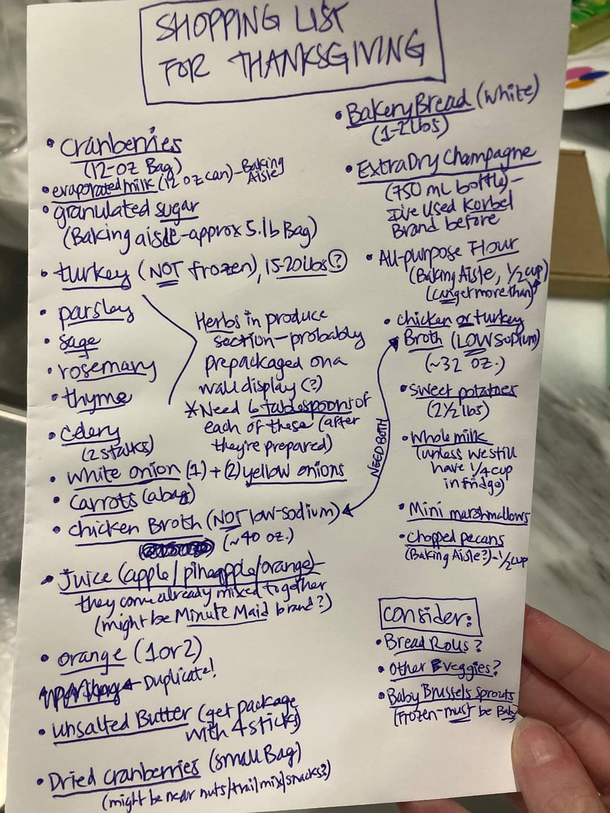 SHOPPING LIST
FOR THANKSGIVING
• Cranberries
(12-oz Bag)
• evaporated milk (12 oz can) - Baking
Aisle
• granulated sugar
(Baking aisle - approx 5.lb Bag)
• turkey (NOT frozen), 15-20lbs?
• parsley
• sage
• rosemary
• thyme
Herbs in produce
section - probably
prepackaged on a
wall display (?)
* Need 6 tablespoons of
each of these (after
they're prepared)
• celery
(2 stalks)
• white onion (1) + (2) yellow onions
• carrots (a bag)
• chicken Broth (NOT low-sodium)
(~40 oz.)
NEED BOTH
• Juice (apple/pineapple/orange) -
they come already mixed together
(might be Minute Maid brand?)
• orange (1 or 2)
← Duplicate!
• unsalted Butter (get package
with 4 sticks)
• Dried cranberries (small Bag)
(might be near nuts/trail mix/snacks?)
• Bakery Bread (white)
(1-2 lbs)
• Extra Dry Champagne
(750 mL bottle) -
I've used Korbel
Brand before
• All-purpose Flour
(Baking Aisle, 1/2 cup)
(can get more than)
• chicken or turkey
Broth (LOW sodium)
(~32 oz.)
• sweet potatoes
(2 1/2 lbs)
• Whole milk
(unless we still
have 1/4 cup
in fridge)
• Mini marshmallows
• Chopped pecans
(Baking Aisle?) - 1/2 cup
Consider:
• Bread Rolls?
• Other veggies?
• Baby Brussels sprouts
(Frozen - must be Baby)